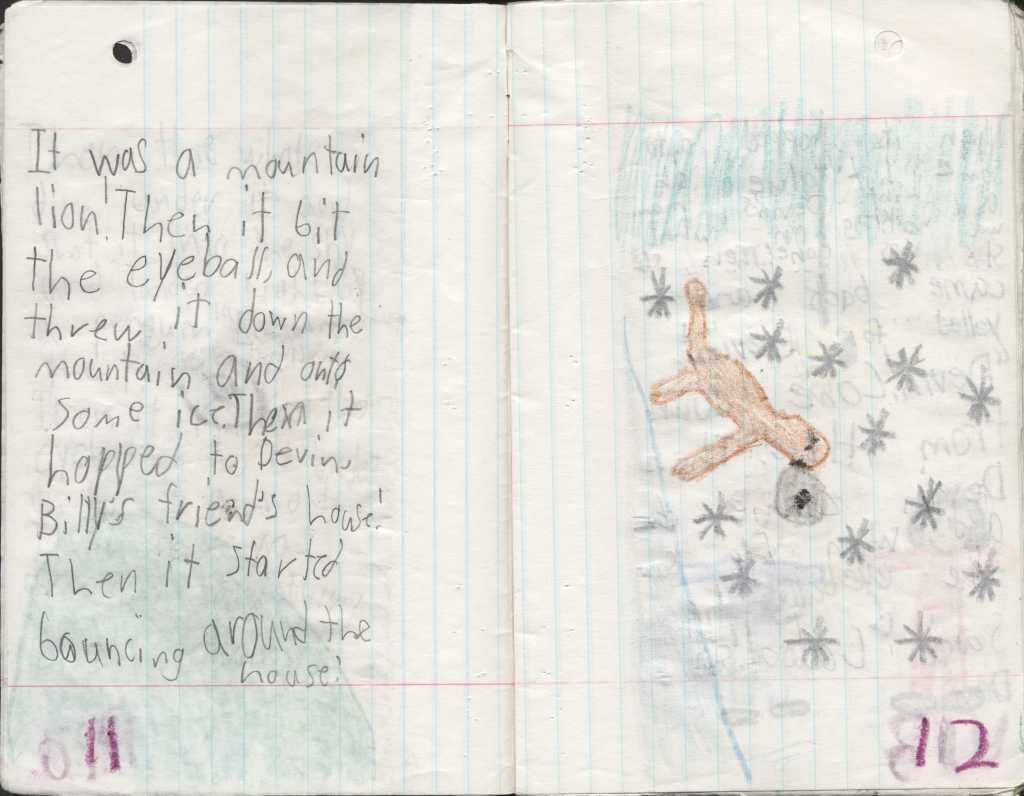 It was a mountain
lion! Then it bit
the eyeball, and
threw it down the
mountain and onto
some ice. Then it
hopped to Devin,
Billy's friend's house!
Then it started
bouncing around the
house!
11
12